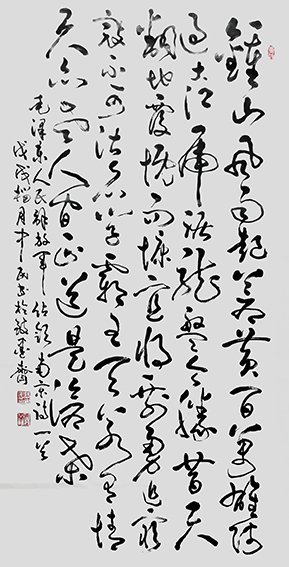 鍾山風雨起蒼黄百萬雄師
過大江虎踞龍盤今勝昔天
翻地覆慨而慷宜將剩勇追窮
寇不可沽名学霸王天若有情
天亦老人間正道是滄桑
毛澤東人民解放軍佔領南京詩一首
戊戌腊月中民書於齋